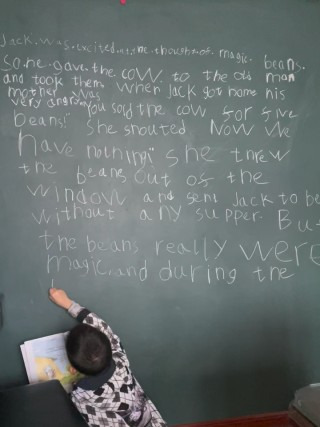 Jack.was.excited.at.the.thought.of.magic.beans.
so.he.gave.the cow to the old man
and took them. When Jack got home his
mother was
very angry. "You sold the cow for five
beans!" She shouted. Now we
have nothing" she threw
the beans out of the
window and sent Jack to be
without any supper. Bu
the beans really were
magic.and during the